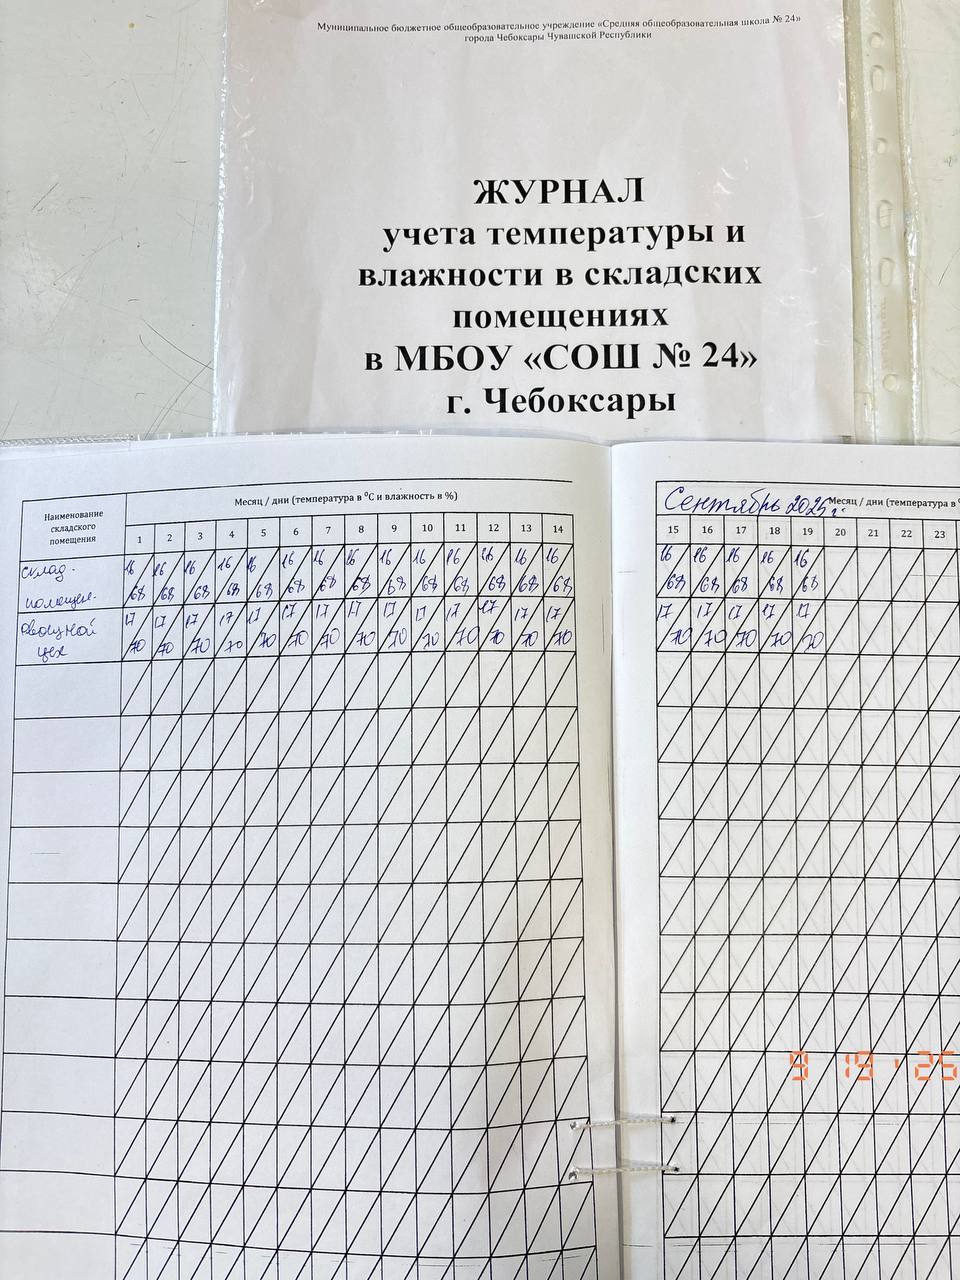 Муниципальное бюджетное общеобразовательное учреждение «Средняя общеобразовательная школа № 24»
города Чебоксары Чувашской Республики
ЖУРНАЛ
учета температуры и
влажности в складских
помещениях
в МБОУ «СОШ № 24»
г. Чебоксары
Наименование складского помещения
Месяц / дни (температура в ⁰С и влажность в %)
1 2 3 4 5 6 7 8 9 10 11 12 13 14
склад. помещен.
16 16 16 16 16 16 16 16 16 16 16 16 16 16
68 68 68 68 68 68 68 68 68 68 68 68 68 68
овощной цех
17 17 17 17 17 17 17 17 17 17 17 17 17 17
70 70 70 70 70 70 70 70 70 70 70 70 70 70
Сентябрь 2025 г. Месяц / дни (температура в
15 16 17 18 19 20 21 22 23
16 16 16 16 16
68 68 68 68 68
17 17 17 17 17
70 70 70 70 70
9 19 '25